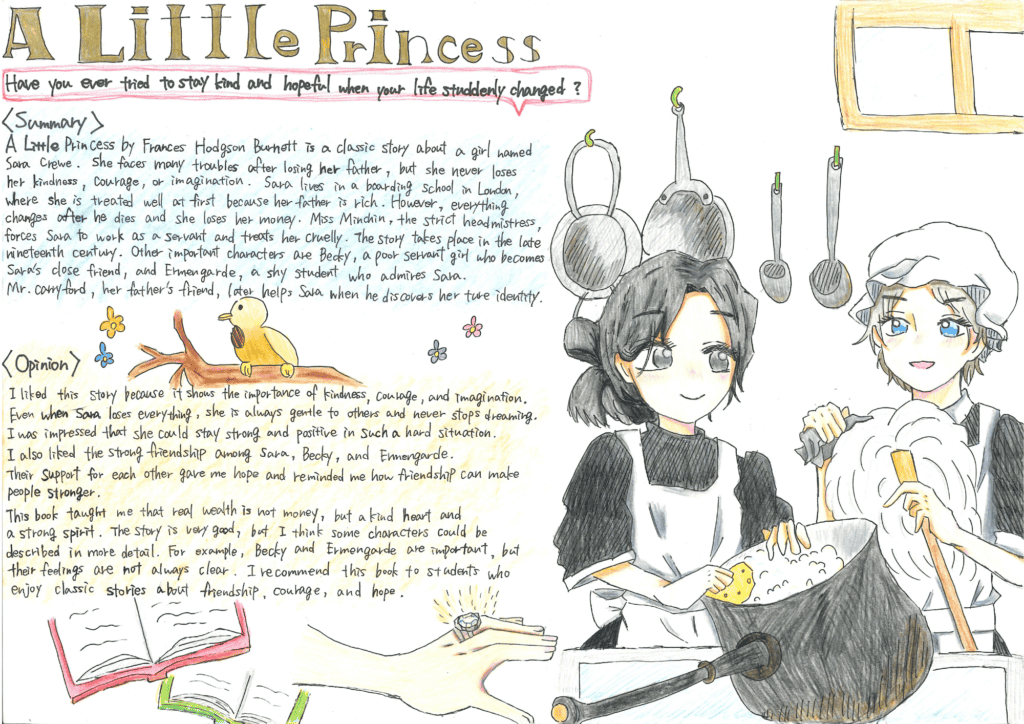 A Little Princess
Have you ever tried to stay kind and hopeful when your life studdenly changed ?
<Summary>
A Little Princess by Frances Hodgson Burnett is a classic story about a girl named
Sara Crewe. She faces many troubles after losing her father, but she never loses
her kindness, courage, or imagination. Sara lives in a boarding school in London,
where she is treated well at first because her father is rich. However, everything
changes after he dies and she loses her money. Miss Minchin, the strict headmistress,
forces Sara to work as a servant and treats her cruelly. The story takes place in the late
nineteenth century. Other important characters are Becky, a poor servant girl who becomes
Sara's close friend, and Ermengarde, a shy student who admires Sara.
Mr. carryford, her father's friend, later helps Sara when he discovers her ture identity.
<Opinion>
I liked this story because it shows the importance of kindness, courage, and imagination.
Even when Sara loses everything, she is always gentle to others and never stops dreaming.
I was impressed that she could stay strong and positive in such a hard situation.
I also liked the strong friendship among Sara, Becky, and Ermengarde.
Their support for each other gave me hope and reminded me how friendship can make
people stronger.
This book taught me that real wealth is not money, but a kind heart and
a strong spirit. The story is very good, but I think some characters could be
described in more detail. For example, Becky and Ermengarde are important, but
their feelings are not always clear. I recommend this book to students who
enjoy classic stories about friendship, courage, and hope.